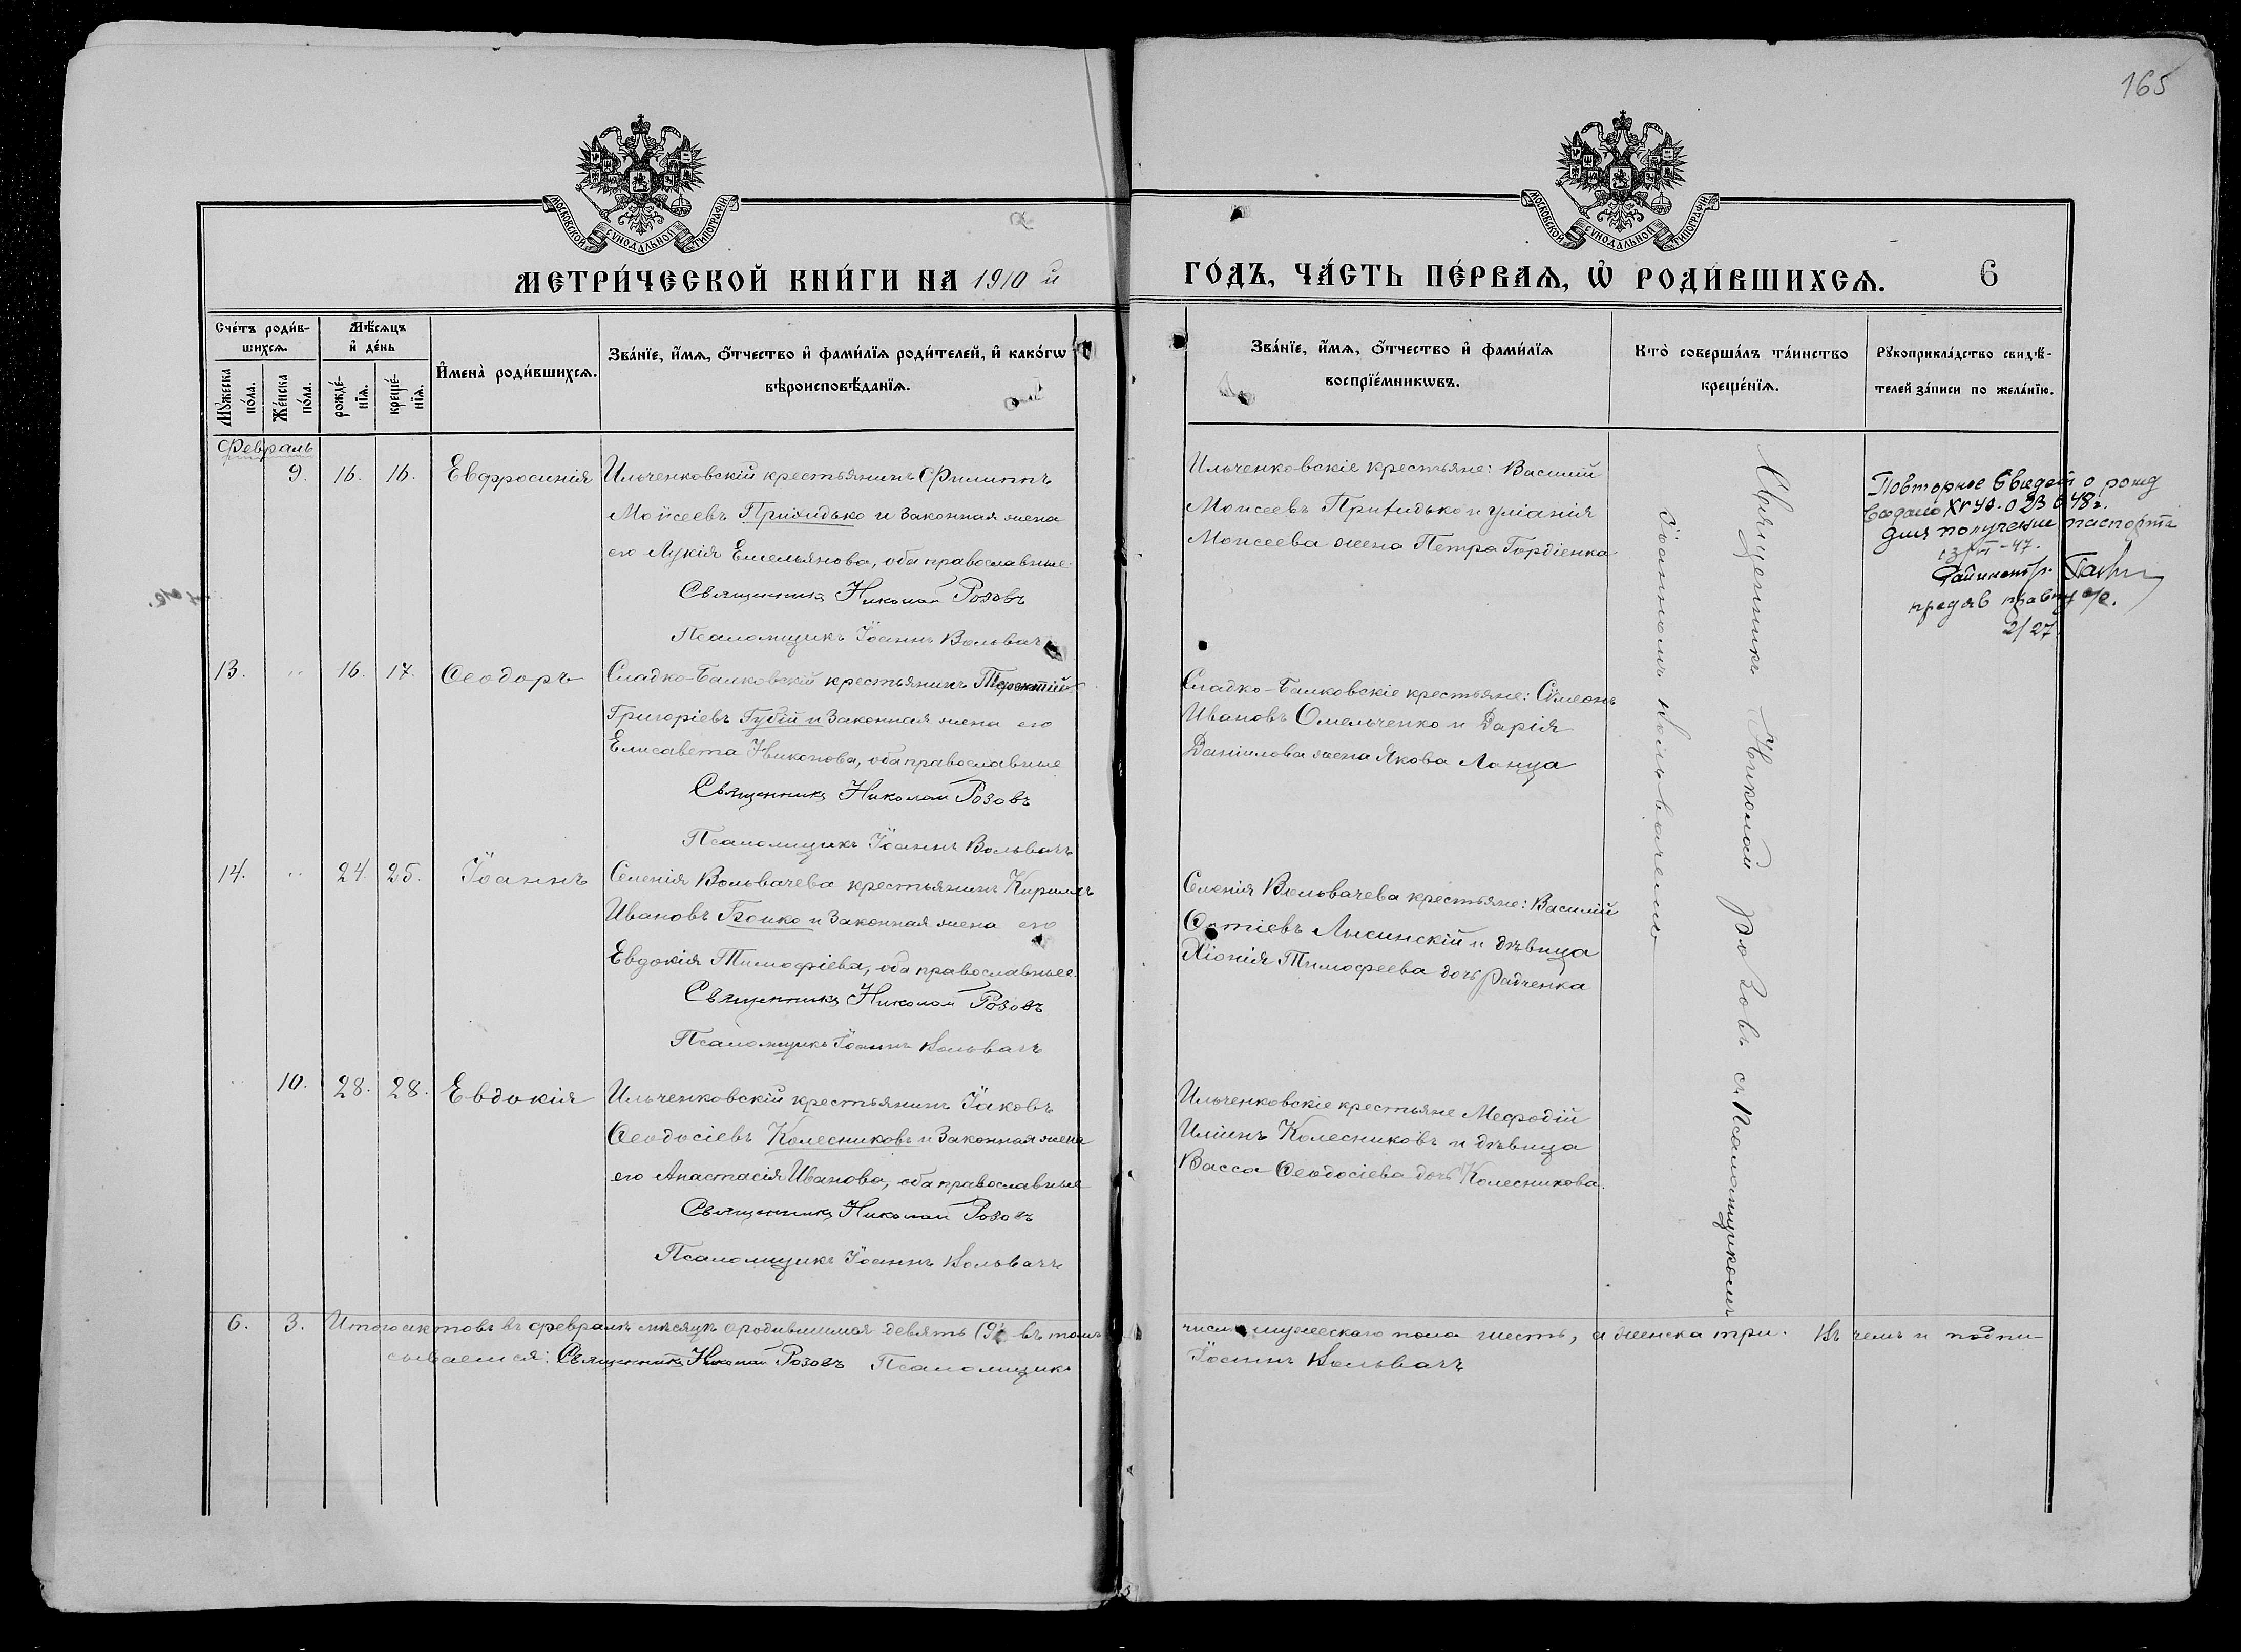 165
МОСКОВСКОЙ СѴНОДАЛЬНОЙ ТИПОГРАФІИ
МОСКОВСКОЙ СѴНОДАЛЬНОЙ ТИПОГРАФІИ
МЕТРИ́ЧЕСКОЙ КНИ́ГИ НА 1910 й
ГО́ДЪ, ЧА́СТЬ ПЕ́РВАѦ, Ѡ҆ РОДИ́ВШИХСѦ. 6
Сче́тъ роди́в-
шихсѧ.
Мѣ́сѧцъ
и҆ де́нь
Мꙋ́жеска
по́ла.
Же́нска
по́ла.
рожде́-
нїѧ.
креще́-
нїѧ.
И҆мена̀ роди́вшихсѧ.
Зва́нїе, и҆́мѧ, ѻ҆́тчество и҆ фами́лїѧ роди́телей, и҆ како́гѡ
вѣроисповѣ́данїѧ.
Зва́нїе, и҆́мѧ, ѻ҆́тчество и҆ фами́лїѧ
воспрїе́мникѡвъ.
Кто̀ соверша́лъ та́инство
креще́нїѧ.
Рꙋкоприкла́дство свидѣ́-
телей за́писи по жела́нїю.
Февраль
9. 16. 16. Евфросинія Ильченковскій крестьянинъ Филиппъ
Моисеевъ Приходько и законная жена
его Лукія Емельянова, оба православные
Священникъ Николай Розовъ
Псаломщикъ Іоаннъ Вольвачъ
Ильченковскіе крестьяне: Василій
Моисеевъ Приходько и Уліанія
Моисеева жена Петра Гордіенка
Повторное свидет о рожд
выдано ХГ 40. 0 23 648 г.
для получение паспорта
13/VI-47.
2/27
13. " 16. 17. Ѳеодоръ Сладко-Балковскій крестьянинъ Терентій
Григоріевъ Губій и законная жена его
Елисавета Никонова, оба православные
Священникъ Николай Розовъ
Псаломщикъ Іоаннъ Вольвачъ
Сладко-Балковскіе крестьяне: Сѵмеонъ
Ивановъ Омельченко и Дарія
Даніилова жена Якова Ланца
14. " 24. 25. Іоаннъ Селенія Вольвачева крестьянинъ Кириллъ
Ивановъ Бойко и законная жена его
Евдокія Тимофіева, оба православные
Священникъ Николай Розовъ
Псаломщикъ Іоаннъ Вольвачъ
Селенія Вольвачева крестьяне: Василій
Лисинскій и дѣвица
Хіонія Тимофеева дочь Радченка
" 10. 28. 28. Евдокія Ильченковскій крестьянинъ Іаковъ
Ѳеодосіевъ Колесниковъ и законная жена
его Анастасія Иванова, оба православные
Священникъ Николай Розовъ
Псаломщикъ Іоаннъ Вольвачъ
Ильченковскіе крестьяне Мефодій
Иліинъ Колесниковъ и дѣвица
Васса Ѳеодосіева дочь Колесникова.
Священникъ Николай Розовъ съ Псаломщикомъ
Іоанномъ Вольвачемъ
6. 3. Итого актовъ въ февралѣ мѣсяцѣ о родившихся девять (9) въ томъ
числѣ мужескаго пола шесть, а женска три. Въ чемъ и подпи-
сываемся: Священникъ Николай Розовъ Псаломщикъ
Іоаннъ Вольвачъ